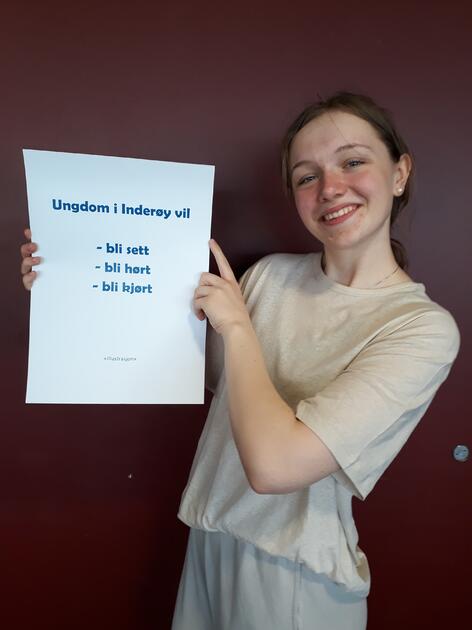 Ungdom i Inderøy vil
- bli sett
- bli hørt
- bli kjørt
«illustrasjon»